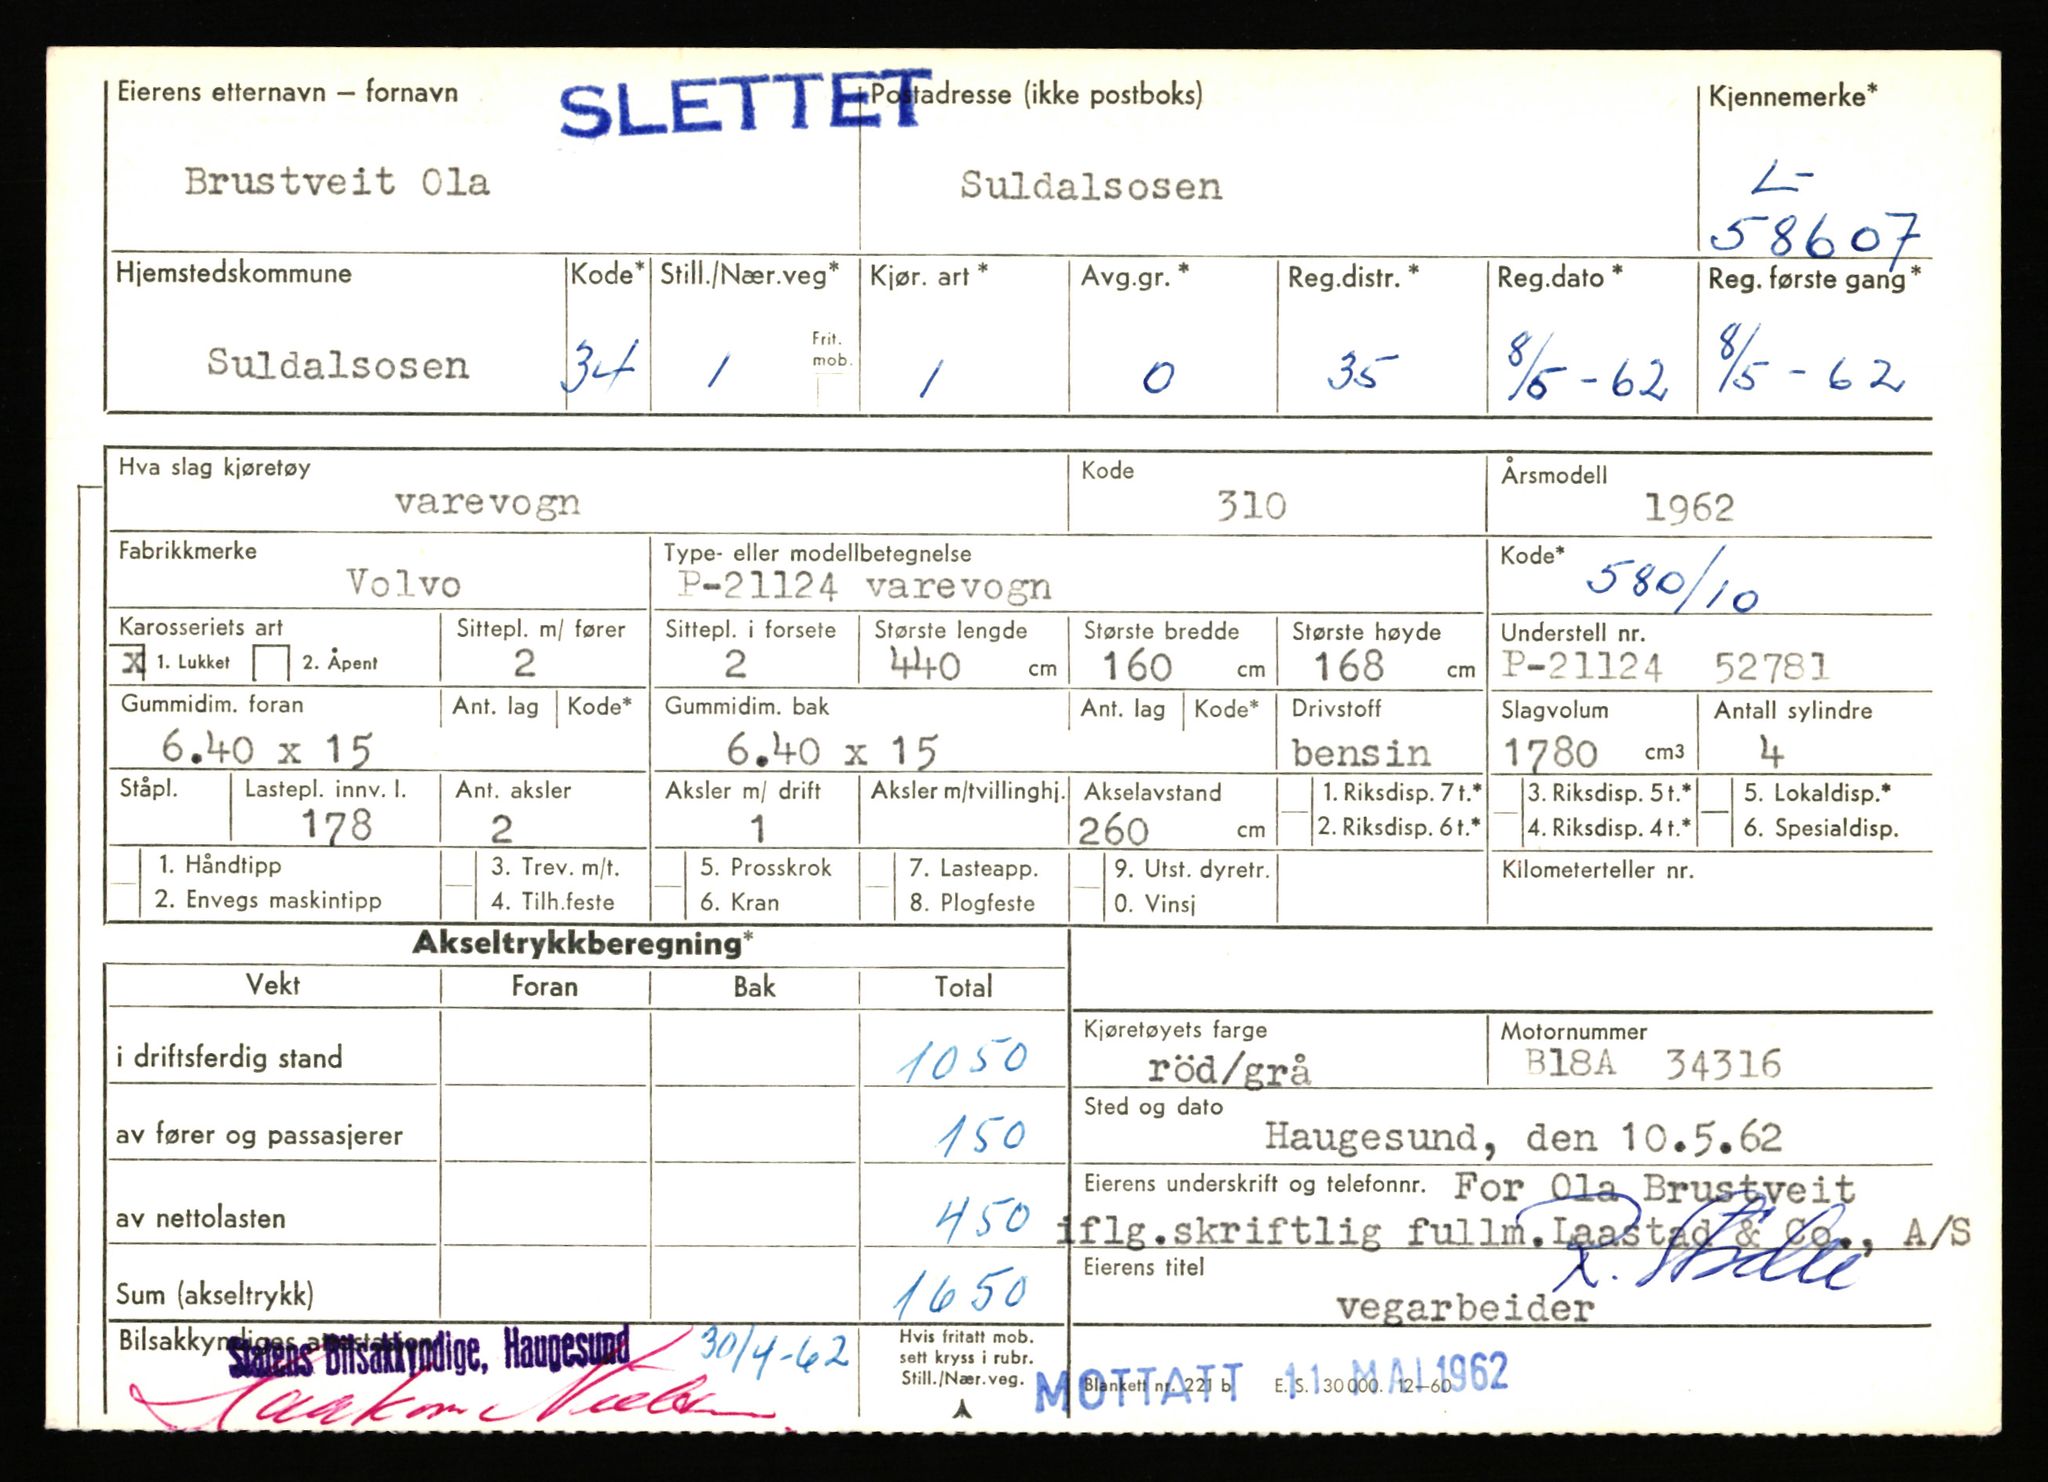 SLETTET
Eierens etternavn – fornavn
Postadresse (ikke postboks)
Kjennemerke*
Brustveit Ola
Suldalsosen
L-
58607
Hjemstedskommune
Kode*
Still./Nær.veg*
Kjør. art *
Avg.gr. *
Reg.distr. *
Reg.dato *
Reg. første gang*
Suldalsosen
34
1
Frit.
mob.
1
0
35
8/5-62
8/5-62
Hva slag kjøretøy
Kode
Årsmodell
varevogn
310
1962
Fabrikkmerke
Type- eller modellbetegnelse
Kode*
Volvo
P-21124 varevogn
580/10
Karosseriets art
Sittepl. m/ fører
Sittepl. i forsete
Største lengde
Største bredde
Største høyde
Understell nr.
x 1. Lukket
2. Åpent
2
2
440 cm
160 cm
168 cm
P-21124 52781
Gummidim. foran
Ant. lag
Kode*
Gummidim. bak
Ant. lag
Kode*
Drivstoff
Slagvolum
Antall sylindre
6.40 x 15
6.40 x 15
bensin
1780 cm3
4
Ståpl.
Lastepl. innv. l.
Ant. aksler
Aksler m/ drift
Aksler m/tvillinghj.
Akselavstand
1. Riksdisp. 7 t.*
3. Riksdisp. 5 t.*
5. Lokaldisp.*
178
2
1
260 cm
2. Riksdisp. 6 t.*
4. Riksdisp. 4 t.*
6. Spesialdisp.
1. Håndtipp
3. Trev. m/t.
5. Prosskrok
7. Lasteapp.
9. Utst. dyretr.
Kilometerteller nr.
2. Envegs maskintipp
4. Tilh.feste
6. Kran
8. Plogfeste
0. Vinsj
Akseltrykkberegning*
Vekt
Foran
Bak
Total
i driftsferdig stand
1050
Kjøretøyets farge
Motornummer
röd/grå
B18A 34316
av fører og passasjerer
150
Sted og dato
Haugesund, den 10.5.62
av nettolasten
450
Eierens underskrift og telefonnr.
For Ola Brustveit
iflg.skriftlig fullm.Laastad & Co., A/S
Sum (akseltrykk)
1650
Eierens titel
vegarbeider
Bilsakkyndiges attestasjon
Statens Bilsakkyndige, Haugesund
30/4-62
Hvis fritatt mob.
sett kryss i rubr.
Still./Nær.veg.
MOTTATT 11 MAI 1962
Blankett nr. 221 b
E. S. 130 000. 12—60